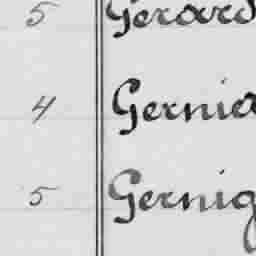 5 Gerard
4 Gernia
5 Gernig